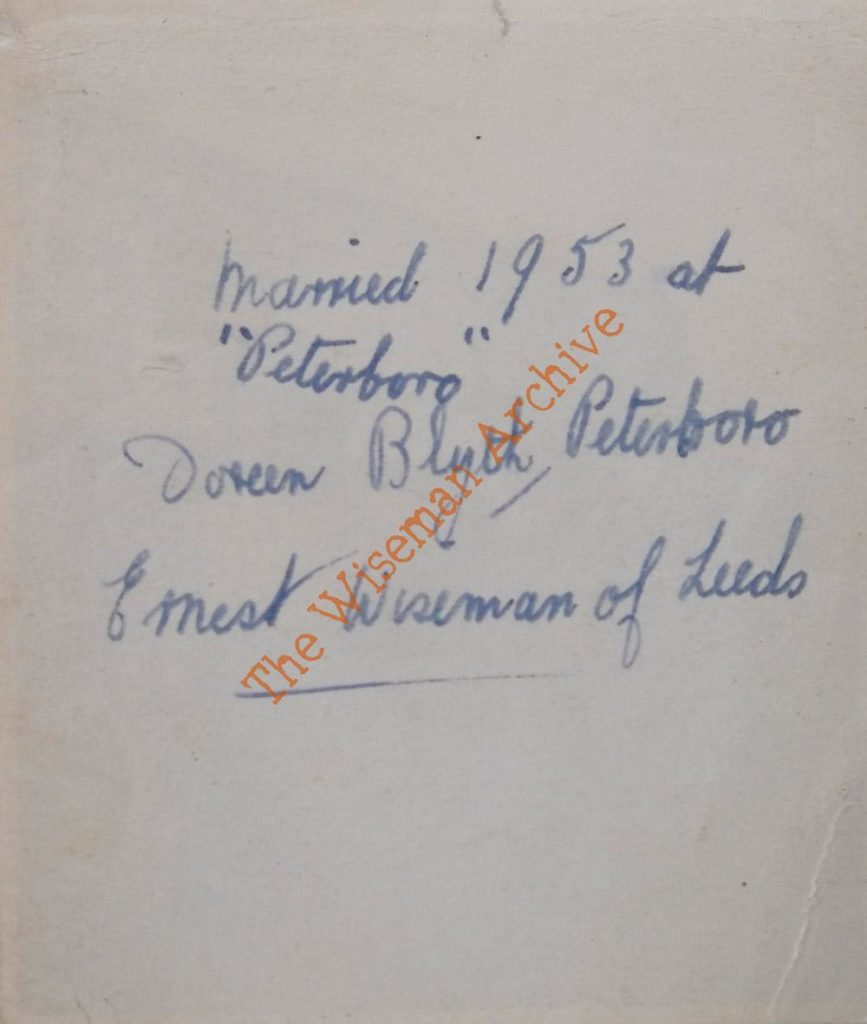 Married 1953 at
"Peterboro"
Doreen Blyth, Peterboro
Ernest Wiseman of Leeds
The Wiseman Archive